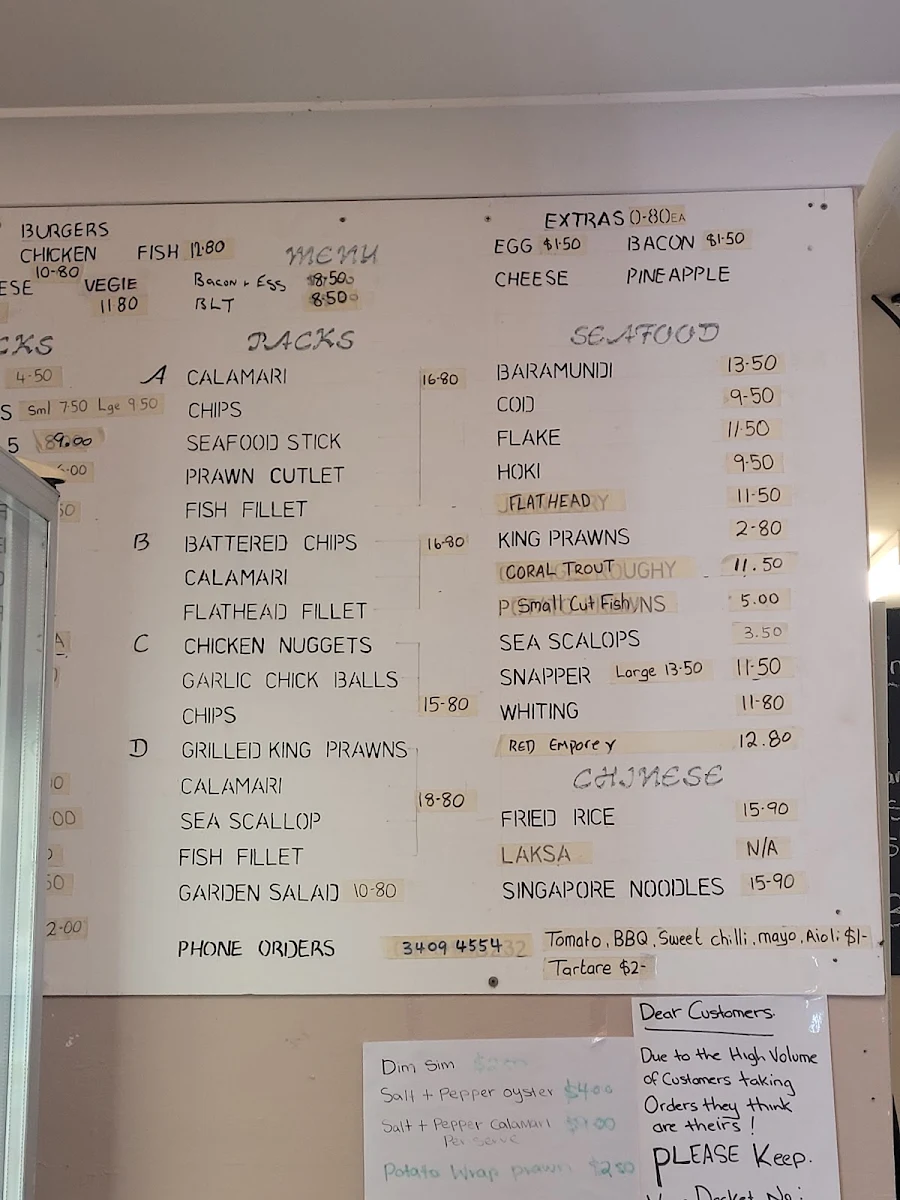 BURGERS
CHICKEN 10-80 FISH 12.80
VEGIE 11 80
MENU
Bacon + Egg 8.50
BLT 8.50
EXTRAS 0-80EA
EGG $1.50 BACON $1-50
CHEESE PINEAPPLE
4-50
Sml 7.50 Lge 9 50
PACKS
A CALAMARI 16-80
CHIPS
SEAFOOD STICK
PRAWN CUTLET
FISH FILLET
B BATTERED CHIPS 16-80
CALAMARI
FLATHEAD FILLET
C CHICKEN NUGGETS
GARLIC CHICK BALLS 15-80
CHIPS
D GRILLED KING PRAWNS
CALAMARI 18-80
SEA SCALLOP
FISH FILLET
GARDEN SALAD 10-80
PHONE ORDERS 3409 4554
SEAFOOD
BARAMUNDI 13-50
COD 9-50
FLAKE 11.50
HOKI 9.50
FLATHEAD 11-50
KING PRAWNS 2-80
CORAL TROUT 11.50
Small Cut Fish 5.00
SEA SCALOPS 3.50
SNAPPER Large 13-50 11-50
WHITING 11-80
RED Emporey 12.80
CHINESE
FRIED RICE 15-90
LAKSA N/A
SINGAPORE NOODLES 15-90
Tomato, BBQ, Sweet chilli, mayo, Aioli $1-
Tartare $2-
Dim Sim
Salt + Pepper oyster $4.00
Salt + Pepper Calamari
Per serve
Potato Wrap prawn $2.50
Dear Customers.
Due to the High Volume
of Customers taking
Orders they think
are theirs!
PLEASE Keep.
Your Docket No: